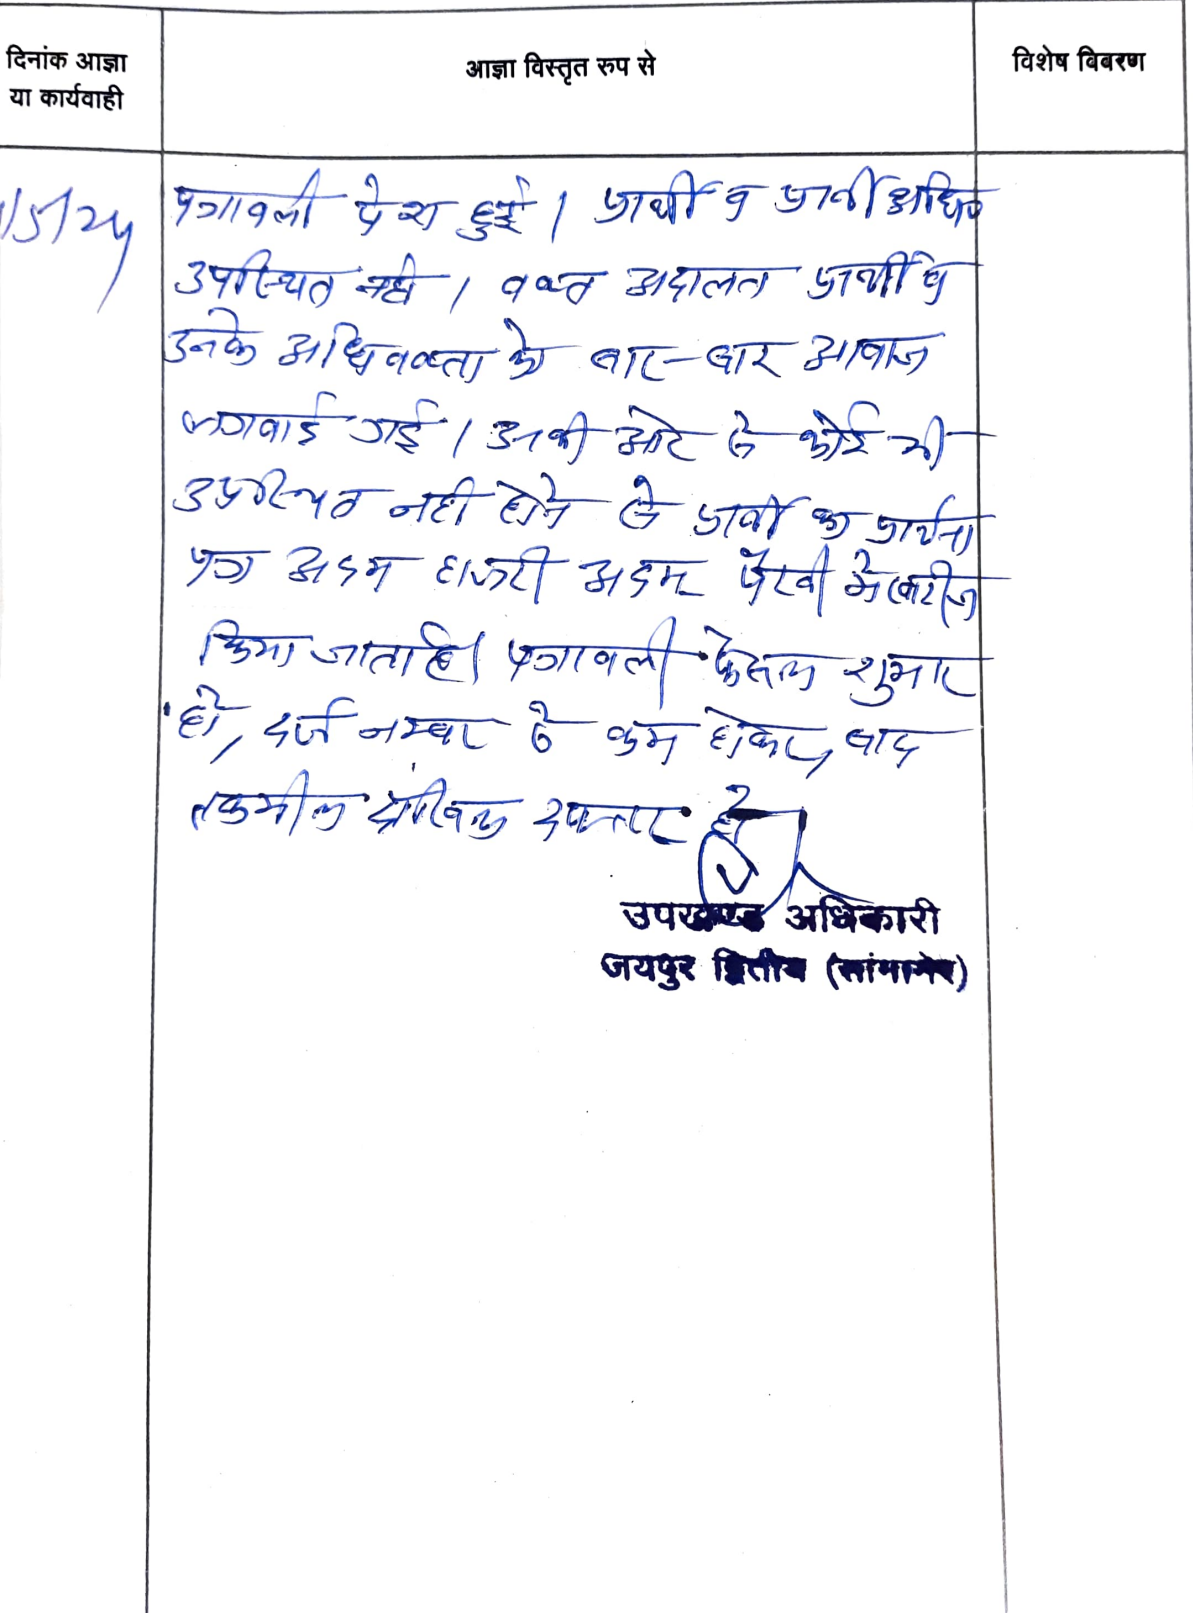 दिनांक आज्ञा
या कार्यवाही
आज्ञा विस्तृत रुप से
विशेष विबरण
/5/24
पत्रावली पेश हुई। प्रार्थी व प्रार्थी अधिव
उपस्थित नही। वक्त अदालत प्रार्थी व
उनके अधिवक्ता को बार-बार आवाज
लगवाई गई। उनकी ओर से कोई भी
उपस्थित नही होने से प्रार्थी का प्रार्थना
पत्र अदम हाजरी अदम पैरवी मे खारीज
किया जाता है। पत्रावली फैसल शुमार
हो, दर्ज नम्बर से कम होकर, बाद
तकमील दाखिल दफ्तर हो।
उपखण्ड अधिकारी
जयपुर द्वितीय (सांगानेर)